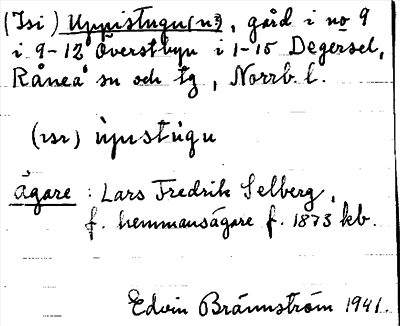 (Isi) Uppistugu(n), gård i no 9
i 9-12 Överstbyn i 1-15 Degersel,
Råneå sn och tg, Norrb. l.
(vsr) ùpistùgu
ägare : Lars Fredrik Selberg,
f. hemmansägare f. 1873 kb.
Edvin Brännström 1941.